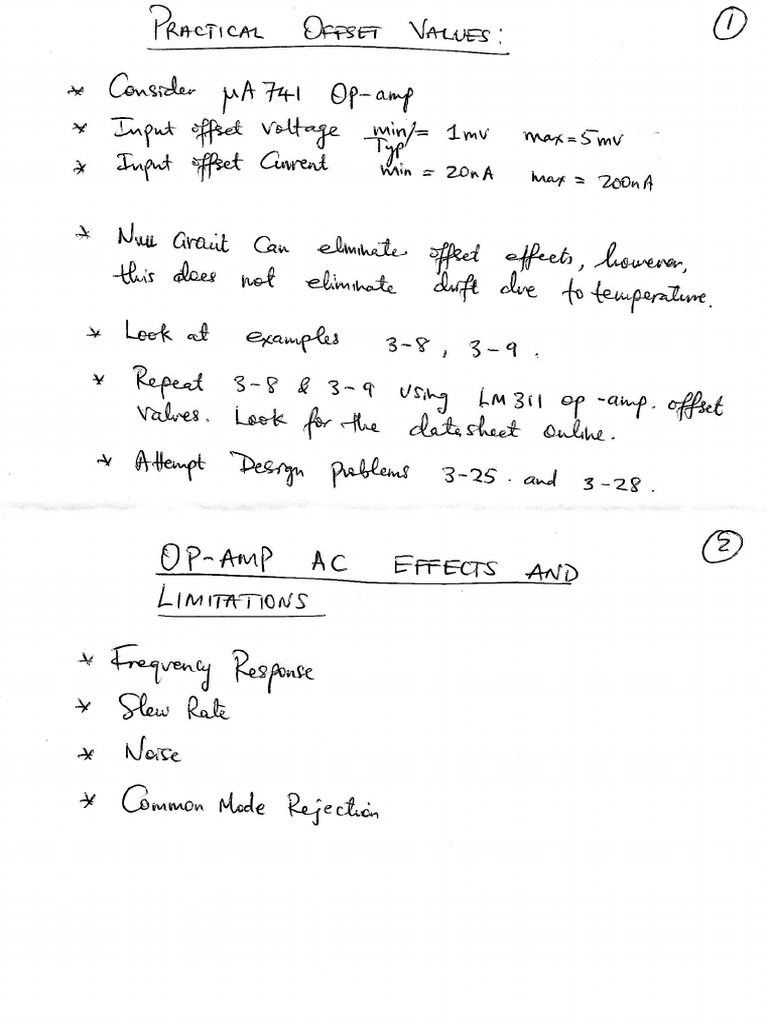 PRACTICAL OFFSET VALUES:
1
* Consider μA 741 Op-amp
* Input offset voltage min/Typ = 1mv max=5mv
* Input offset Current min = 20nA max = 200nA
* Null Circuit Can eliminate offset effects, however,
this does not eliminate drift due to temperature.
* Look at examples 3-8, 3-9.
* Repeat 3-8 & 3-9 using LM311 op-amp. offset
values. Look for the datasheet online.
* Attempt Design problems 3-25. and 3-28.
2
OP-AMP AC EFFECTS AND
LIMITATIONS
* Frequency Response
* Slew Rate
* Noise
* Common Mode Rejection